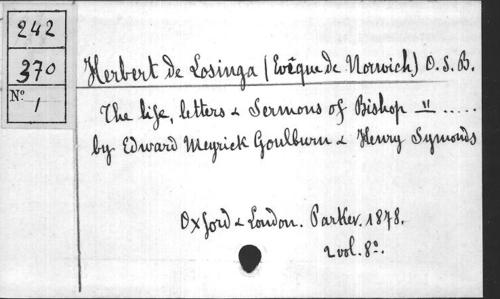 242
370
Nº
1
Herbert de Losinga (Evêque de Norwich) O. S. B.
The life, letters & Sermons of Bishop " .....
by Edward Meyrick Goulburn & Henry Symonds
Oxford & London. Parker. 1878.
2 vol. 8º.